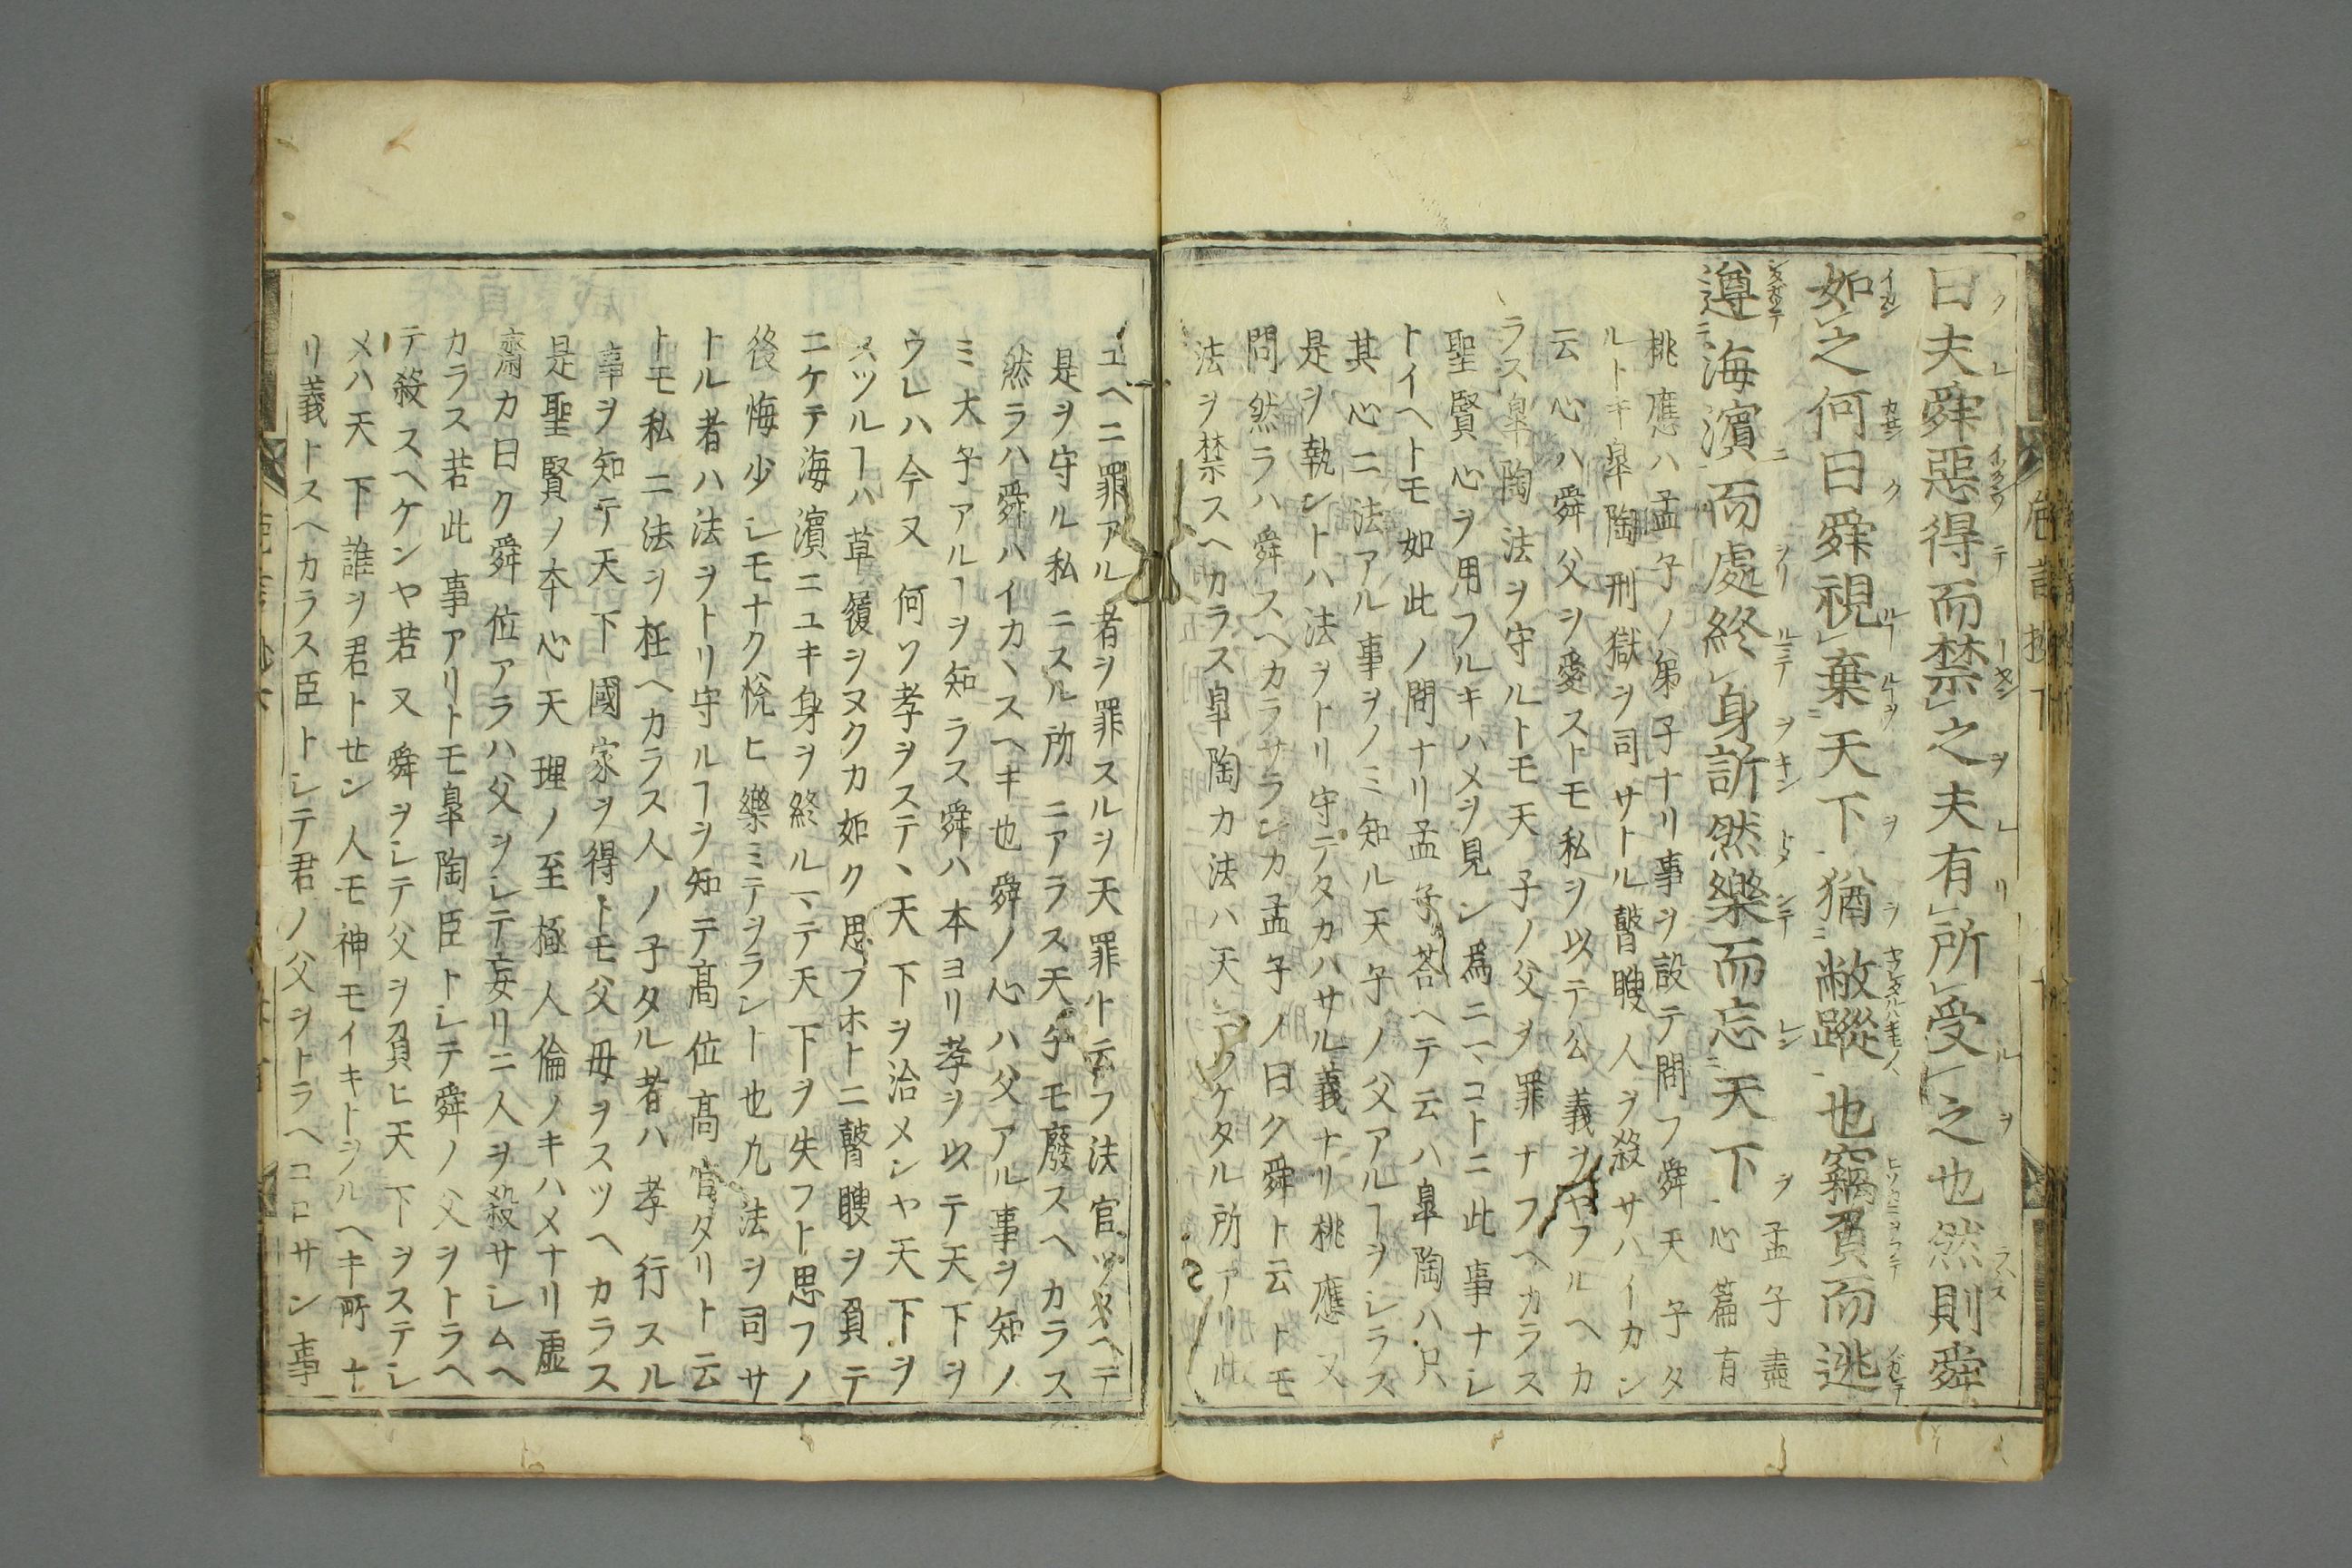 曰夫舜惡得而禁之夫有所受之也然則舜
如之何曰舜視棄天下猶敝蹝也竊負而逃
遵海濱而處終身訢然樂而忘天下 孟子盡心篇有
桃應ハ孟子ノ弟子ナリ事ヲ設テ問フ舜天子タ
ルトキ皐陶刑獄ヲ司サトル瞽瞍人ヲ殺サハイカン
云心ハ舜父ヲ愛ストモ私ヲ以テ公義ヲヤフルヘカ
ラス皐陶法ヲ守ルトモ天子ノ父ヲ罪ナフヘカラス
聖賢心ヲ用フルキハメヲ見ン爲ニマコトニ此事ナレ
トイヘトモ如此ノ問ナリ孟子荅ヘテ云ハ皐陶ハ只
其心ニ法アル事ヲノミ知ル天子ノ父アルヿヲシラス
是ヲ執ントハ法ヲトリ守テタカハサル義ナリ桃應又
問然ラハ舜スヘカラサランカ孟子ノ曰ク舜ト云トモ
法ヲ禁スヘカラス皐陶カ法ハ天ニウケタル所アリ此
ユヘニ罪アル者ヲ罪スルヲ天罪ト云フ法官ツタヘテ
是ヲ守ル私ニスル所ニアラス天子モ廢スヘカラス
然ラハ舜ハイカヽスヘキ也舜ノ心ハ父アル事ヲ知ノ
ミ大子アルヿヲ知ラス舜ハ本ヨリ孝ヲ以テ天下ヲ
ウレハ今又何ソ孝ヲステヽ天下ヲ治メンヤ天下ヲ
スツルヿハ草履ヲヌクカ如ク思フホトニ瞽瞍ヲ負テ
ニケテ海濱ニユキ身ヲ終ルマテ天下ヲ失フト思フノ
後悔少シモナク悅ヒ樂ミテヲラント也凡法ヲ司サ
トル者ハ法ヲトリ守ルヿヲ知テ髙位髙官タリト云
トモ私ニ法ヲ枉ヘカラス人ノ子タル者ハ孝行スル
事ヲ知テ天下國家ヲ得トモ父母ヲスツヘカラス
是聖賢ノ本心天理ノ至極人倫ノキハメナリ虛
齋カ曰ク舜位アラハ父ヲシテ妄リニ人ヲ殺サシムヘ
カラス若此事アリトモ皐陶臣トシテ舜ノ父ヲトラヘ
テ殺スヘケンヤ若又舜ヲシテ父ヲ負ヒ天下ヲステシ
メハ天下誰ヲ君トセン人モ神モイキトヲルヘキ所ナ
リ義トスヘカラス臣トシテ君ノ父ヲトラヘコロサン事